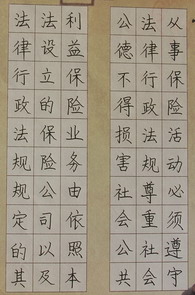 从事保险活动必须遵守
法律行政法规尊重社会
公德不得损害社会公共
利益保险业务由依照本
法设立的保险公司以及
法律行政法规规定的其